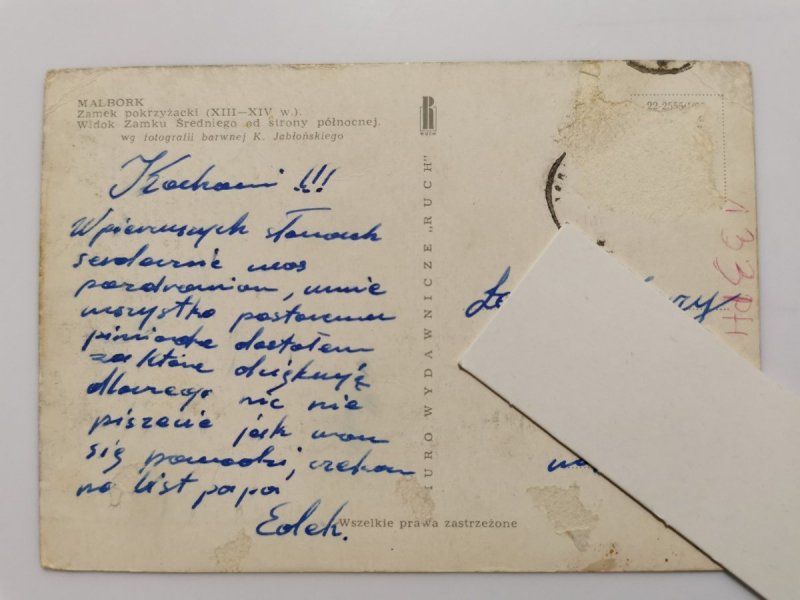 MALBORK
Zamek pokrzyżacki (XIII—XIV w.).
Widok Zamku Średniego od strony północnej.
wg fotografii barwnej K. Jabłońskiego
Kochani !!!
W pierwszych słowach
serdecznie was
pozdrawiam, u mnie
wszystko po staremu
piniądze dostałem
za które dziękuję
dlaczego nic nie
piszecie jak wam
się powodzi, czekam
na list papa
Edek.
Wszelkie prawa zastrzeżone
IURO WYDAWNICZE „RUCH"
RUCH